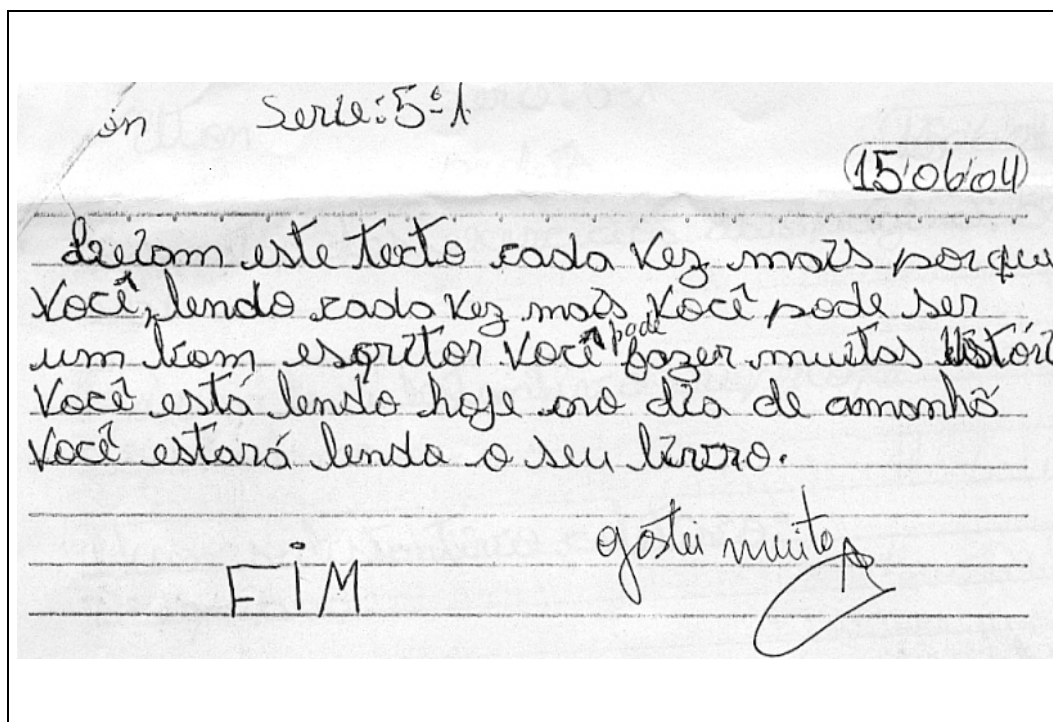 ón Serie: 5ª 1
15/06/04
Leiam este texto cada vez mais porque
Você, lendo cada vez mais você pode ser
um bom esqritor você pode fazer muitas istóri
Você está lendo hoje no dia de amanhã
Você estará lendo o seu livro.
gostei muito
FIM